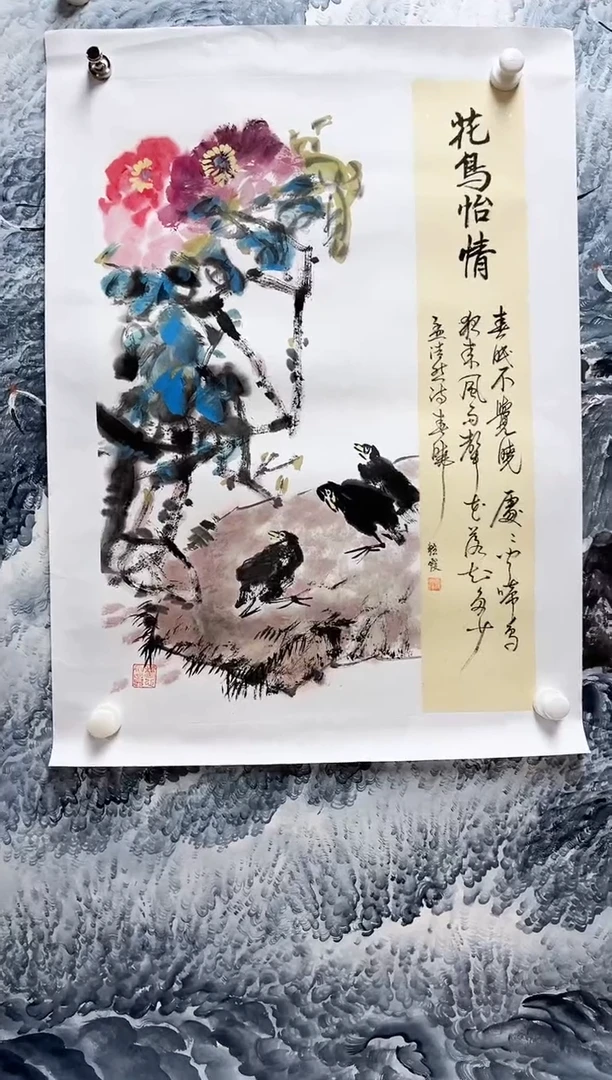 花鳥怡情
春眠不覺曉 處〻聞啼鳥
夜来風雨聲花落知多少
孟浩然诗春曉